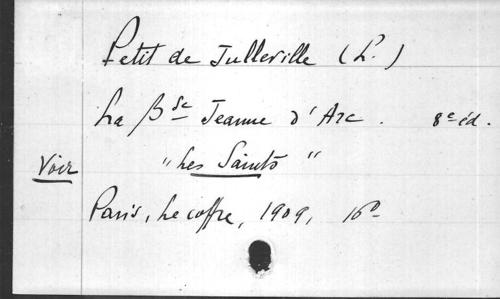 Petit de Julleville (L.)
La Bse Jeanne d'Arc. 8e éd.
Voir "Les Saints"
Paris, Lecoffre, 1909, 16°